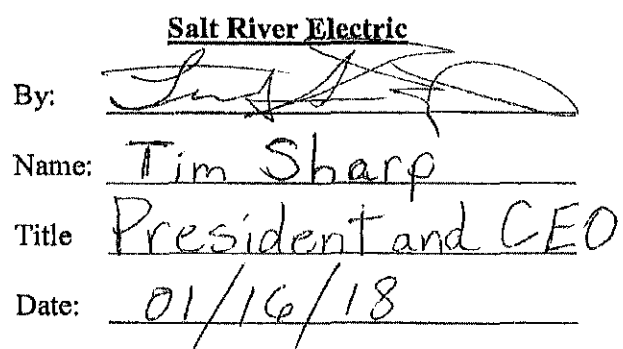 Salt River Electric
By:
Name: Tim Sharp
Title President and CEO
Date: 01/16/18